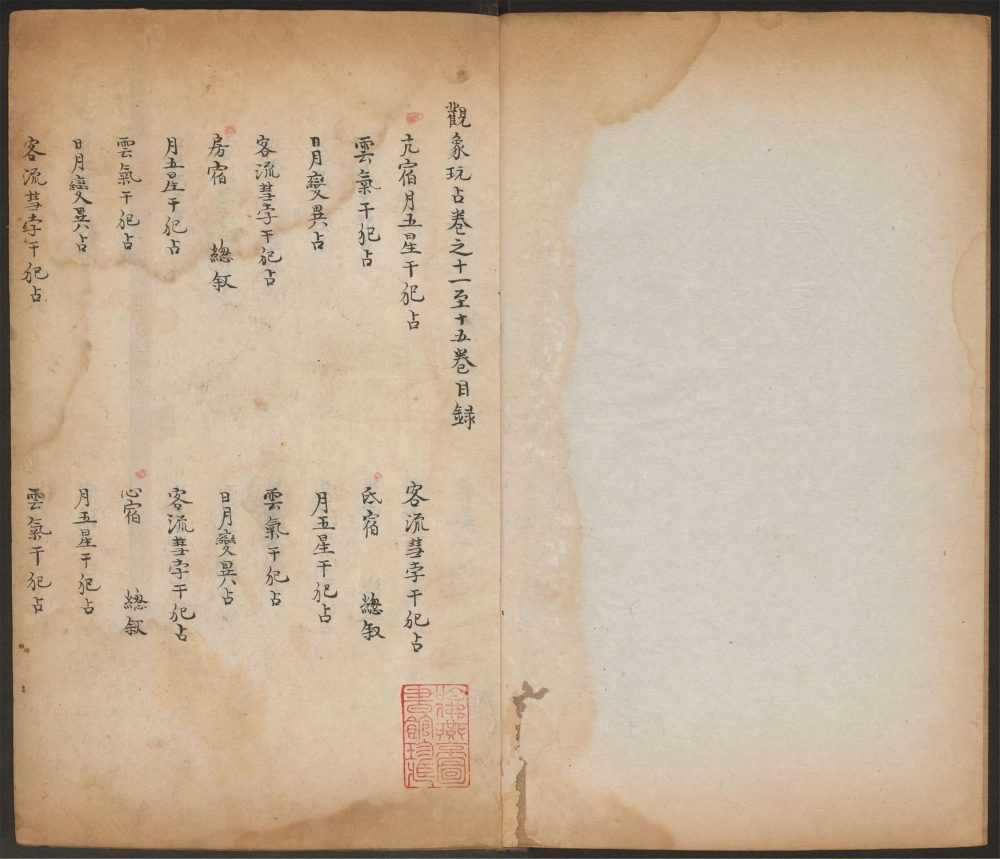 觀象玩占卷之十一至十五卷目錄
亢宿月五星干犯占 客流彗孛干犯占
雲氣干犯占 氐宿 緫叙
日月變異占 月五星干犯占
客流彗孛干犯占 雲氣干犯占
房宿 緫叙 日月變異占
月五星干犯占 客流彗孛干犯占
雲氣干犯占 心宿 緫叙
日月變異占 月五星干犯占
客流彗孛干犯占 雲氣干犯占
哈佛燕京圖
書館珍藏